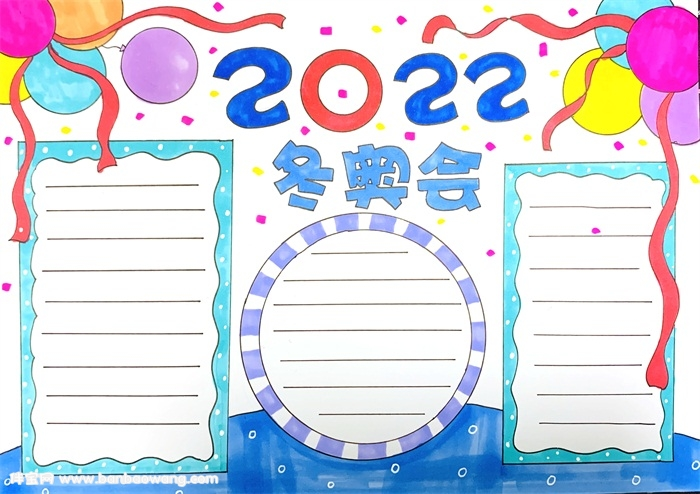 2022
冬奥会
www.banbaowang.com